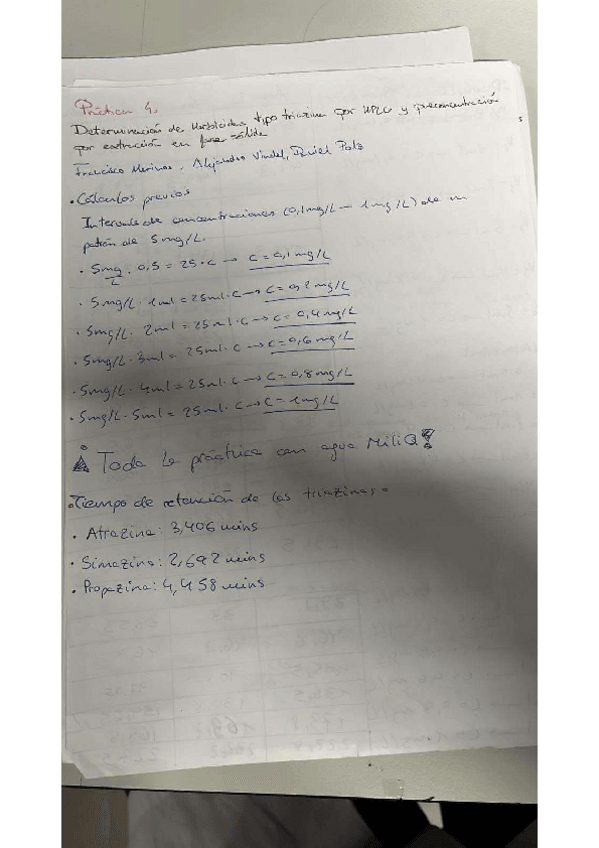 Práctica 4.
Determinación de Herbicidas tipo triazina por HPLC y preconcentración
por extracción en fase sólida
Francisco Merinas, Alejandro Vindel, Daniel Polo
• Cálculos previos
Intervalo de concentraciones (0,1mg/L - 1mg/L) de un
patrón de 5mg/L.
• 5mg/L · 0,5 = 25 · C → C = 0,1mg/L
• 5mg/L · 1ml = 25ml · C → C = 0,2mg/L
• 5mg/L · 2ml = 25ml · C → C = 0,4mg/L
• 5mg/L · 3ml = 25ml · C → C = 0,6mg/L
• 5mg/L · 4ml = 25ml · C → C = 0,8mg/L
• 5mg/L · 5ml = 25ml · C → C = 1mg/L
¡Toda la práctica con agua MiliQ!
• Tiempo de retención de las triazinas
• Atrazina: 3,406 mins
• Simazina: 2,692 mins
• Propazina: 4,458 mins